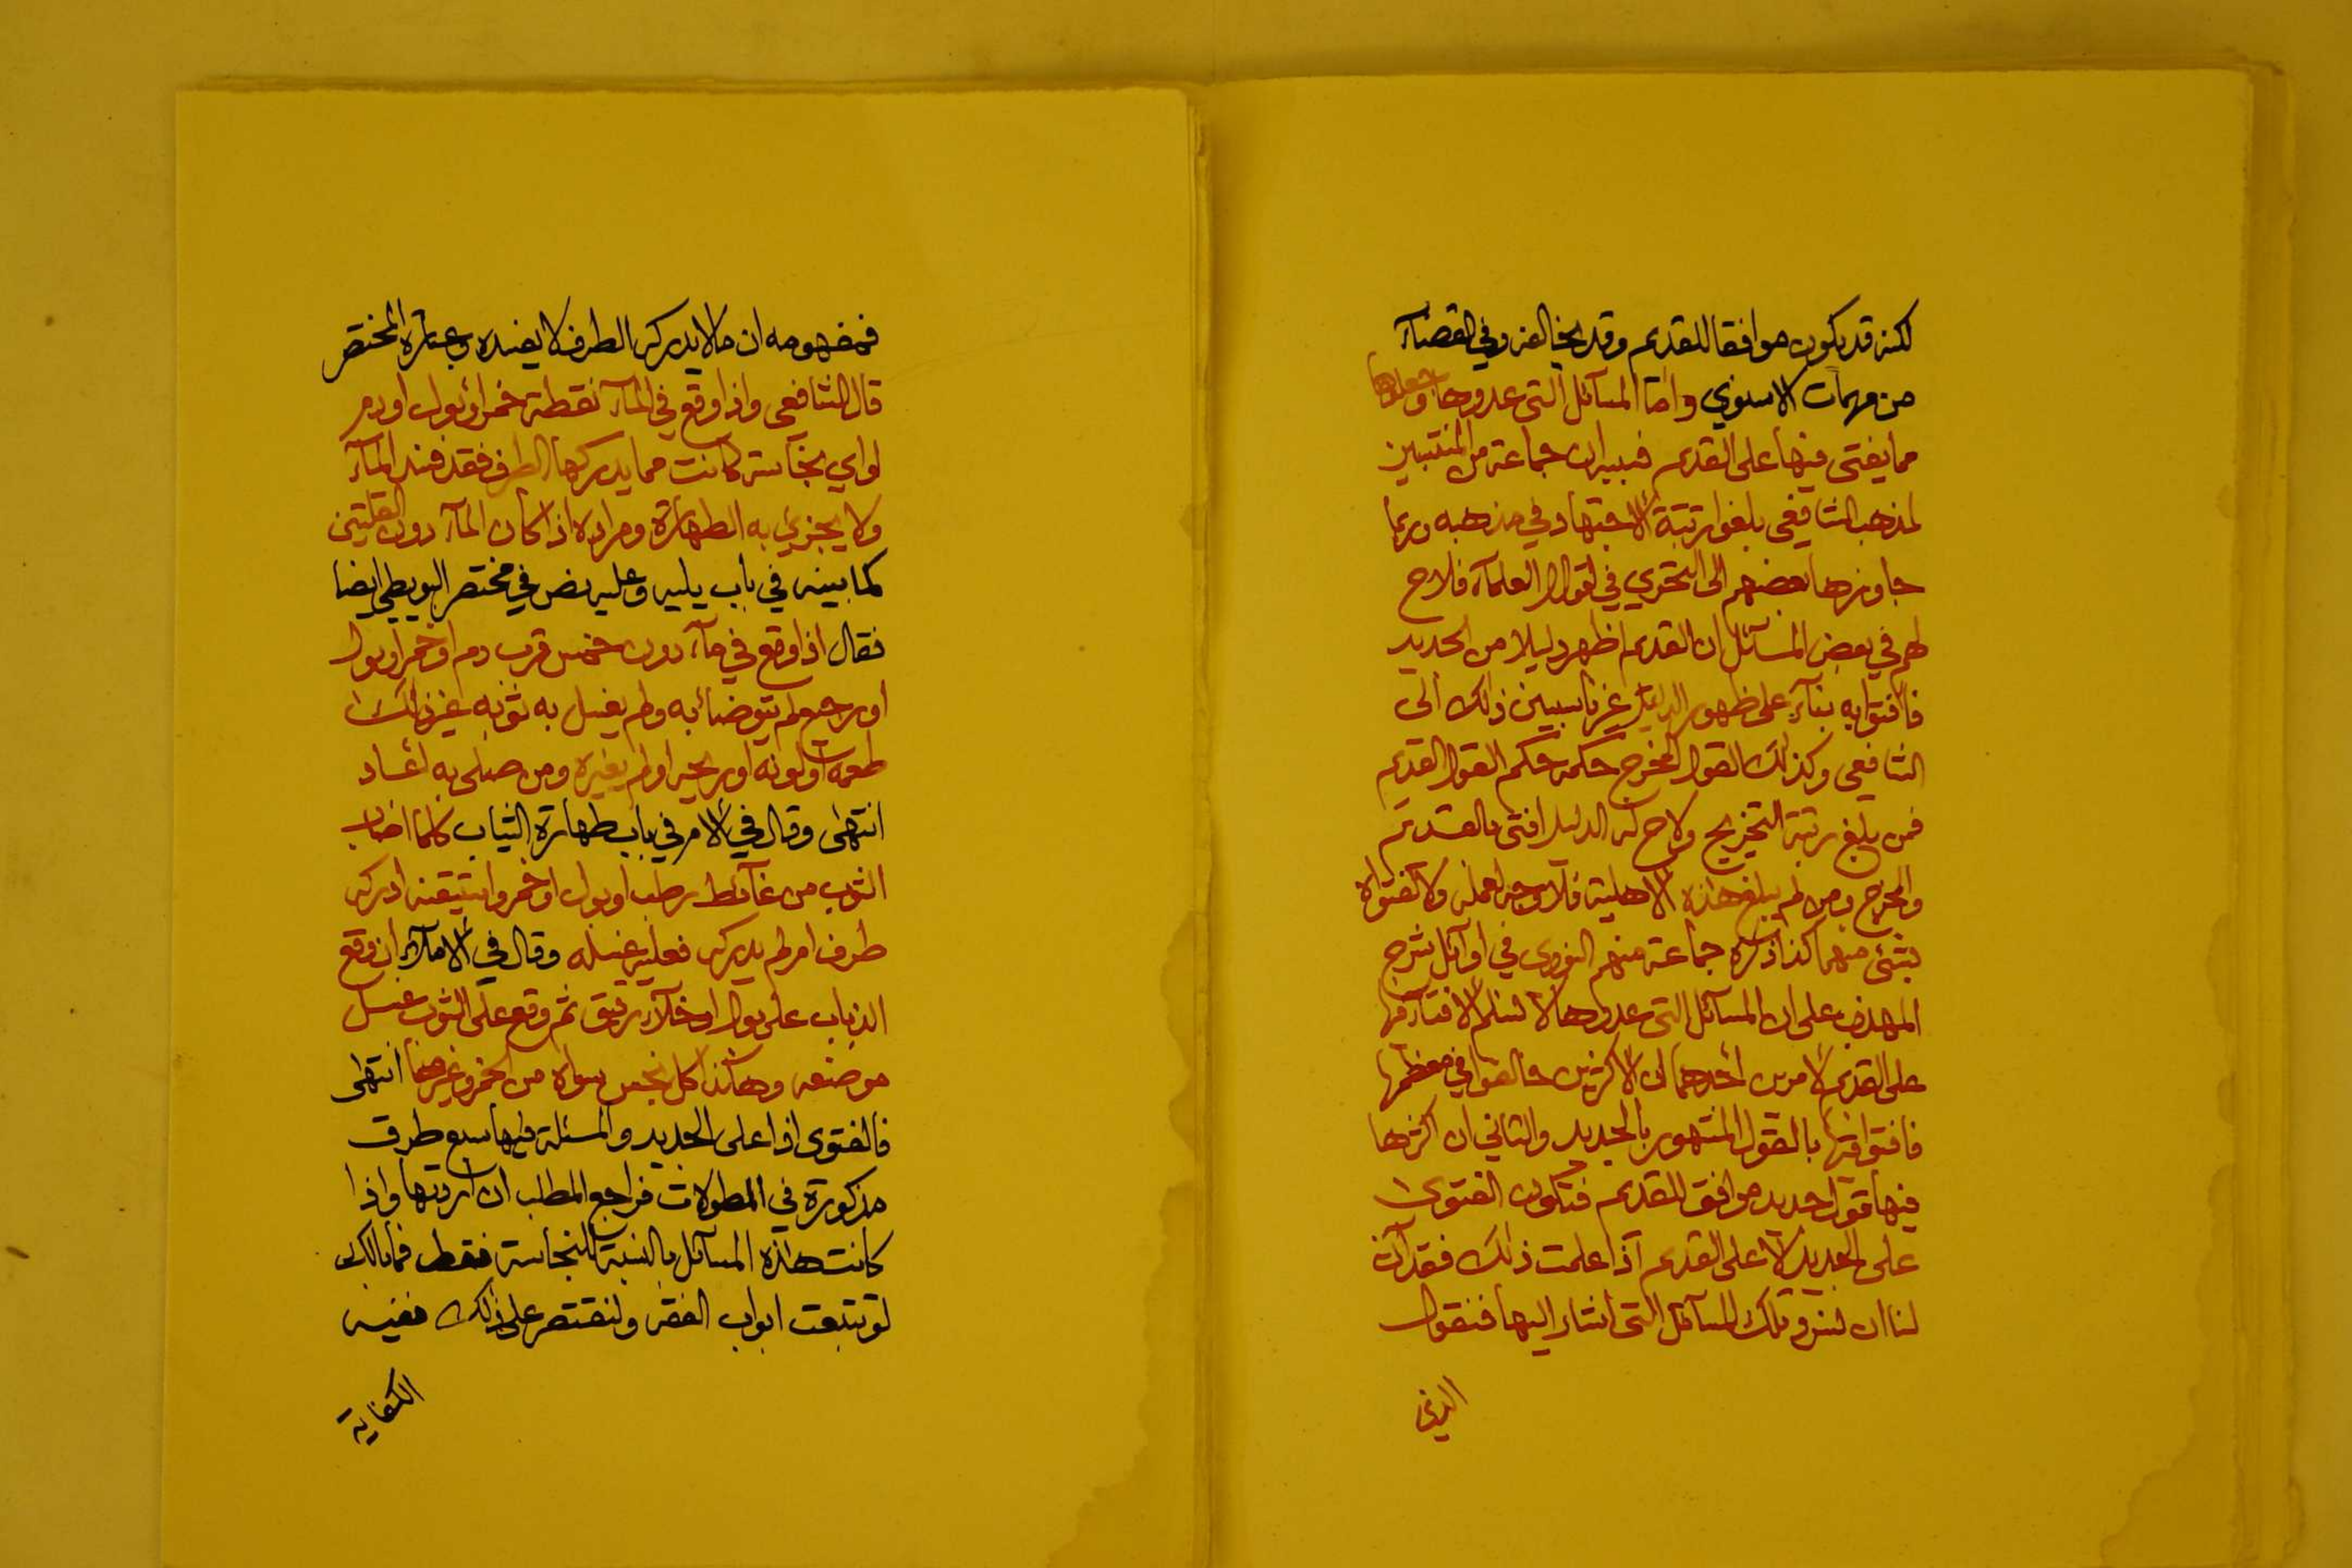 لكنه قد يكون موافقا للقديم وقد يخالفه وفي القضاء
من مهمات الاسنوي واما المسائل التي عدوها وجعلوها
مما يفتى فيها على القديم فسببه ان جماعة من المنتسبين
لمذهب الشافعي بلغوا رتبة الاجتهاد في مذهبه وربما
جاوزها بعضهم الى التحري في اقوال العلماء فلاح
لهم في بعض المسائل ان القديم اظهر دليلا من الجديد
فافتوا به بناء على ظهور الدليل غير ناسبين ذلك الى
الشافعي وكذلك القول المخرج حكمه حكم القول القديم
فمن بلغ رتبة التخريج ولاح له الدليل افتى بالقديم
والمخرج ومن لم يبلغ هذه الاهلية فلا وجه لعمله ولا لفتواه
بشئ منهما كذا ذكره جماعة منهم النووي في اوائل شرح
المهذب على ان المسائل التي عدوها لا نسلم الافتاء فيها
على القديم لامرين احدهما ان الاكثرين خالفوا في معظمها
فافتوا فيها بالقول المشهور بالجديد والثاني ان اكثرها
فيها قول جديد موافق للقديم فتكون الفتوى
على الجديد لا على القديم اذا علمت ذلك فقد آن
لنا ان نسرد تلك المسائل التي اشار اليها فنقول
فمفهومه ان ما لا يدركه الطرف لا يفسده وعبارة المختصر
قال الشافعي واذا وقع في الماء نقطة خمر او بول او دم
او اي نجاسة كانت مما يدركها الطرف فقد فسد الماء
ولا يجزئ به الطهارة ومراده اذا كان الماء دون القلتين
كما بينه في باب يليه وعليه نص في مختصر البويطي ايضا
فقال اذا وقع في ماء دون خمس قرب دم او خمر او بول
او رجيع لم يتوضأ به ولم يغسل به ثوبه غير ذلك
طعمه او لونه او ريحه او لم يغيره ومن صلى به اعاد
انتهى وقال في الام في باب طهارة الثياب كلما اصاب
الثوب من غائط رطب او بول او خمر واستيقنه ادركه
طرف ام لم يدركه فعليه غسله وقال في الاملاء ان وقع
الذباب على بول او خلاء رقيق ثم وقع على الثوب غسل
موضعه وهكذا كل نجس سواه من الخمر وغيرها انتهى
فالفتوى اذا على الجديد والمسئلة فيها سبع طرق
مذكورة في المطولات فراجع المطلب ان اردتها واذا
كانت هذه المسائل بالنسبة للنجاسة فقط فما بالك
لو تتبعت ابواب الفقه ولنقتصر على ذلك ففيه
الكفاية